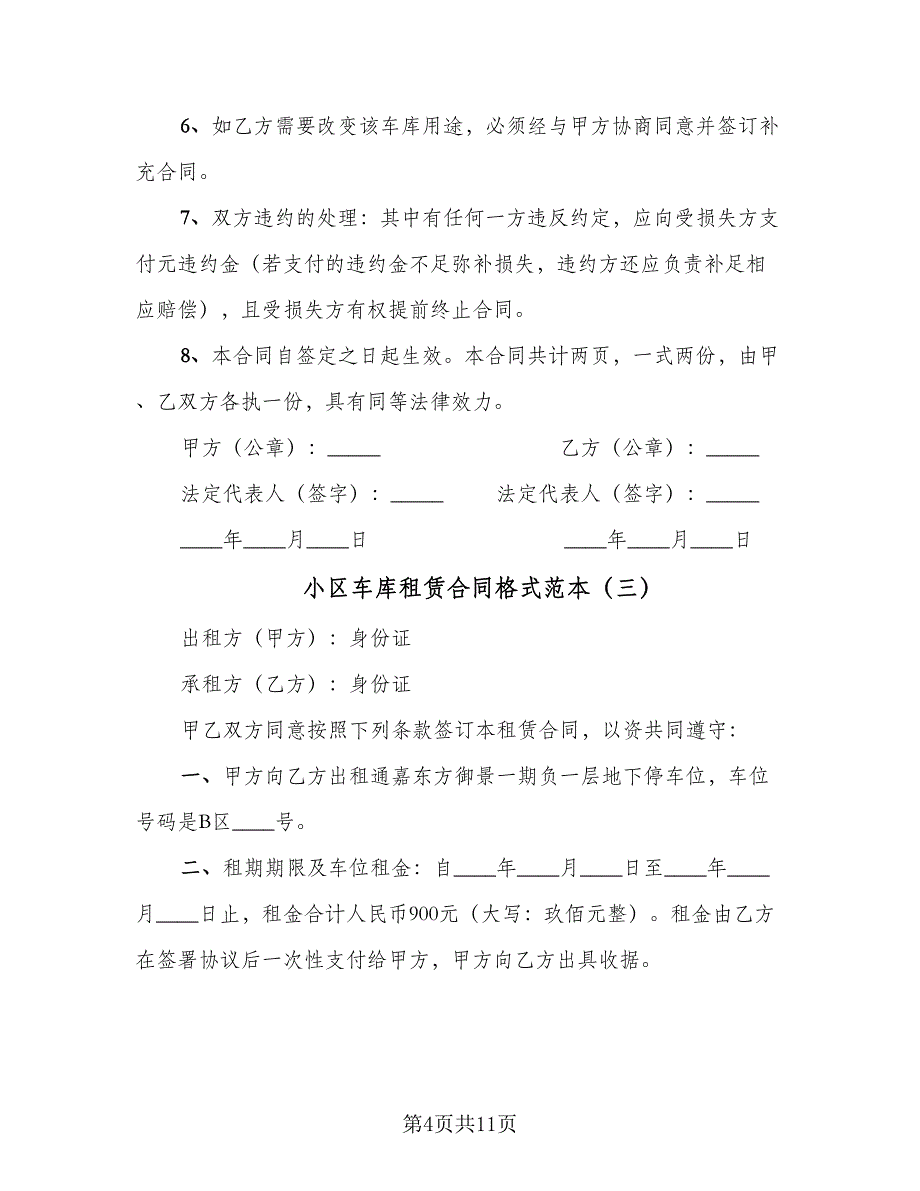 6、如乙方需要改变该车库用途，必须经与甲方协商同意并签订补
充合同。
7、双方违约的处理：其中有任何一方违反约定，应向受损失方支
付元违约金（若支付的违约金不足弥补损失，违约方还应负责补足相
应赔偿），且受损失方有权提前终止合同。
8、本合同自签定之日起生效。本合同共计两页，一式两份，由甲
、乙双方各执一份，具有同等法律效力。
甲方（公章）：_____ 乙方（公章）：_____
法定代表人（签字）：_____ 法定代表人（签字）：_____
____年____月____日 ____年____月____日
小区车库租赁合同格式范本（三）
出租方（甲方）：身份证
承租方（乙方）：身份证
甲乙双方同意按照下列条款签订本租赁合同，以资共同遵守：
一、甲方向乙方出租通嘉东方御景一期负一层地下停车位，车位
号码是B区____号。
二、租期期限及车位租金：自____年____月____日至____年____
月____日止，租金合计人民币900元（大写：玖佰元整）。租金由乙方
在签署协议后一次性支付给甲方，甲方向乙方出具收据。
第4页共11页